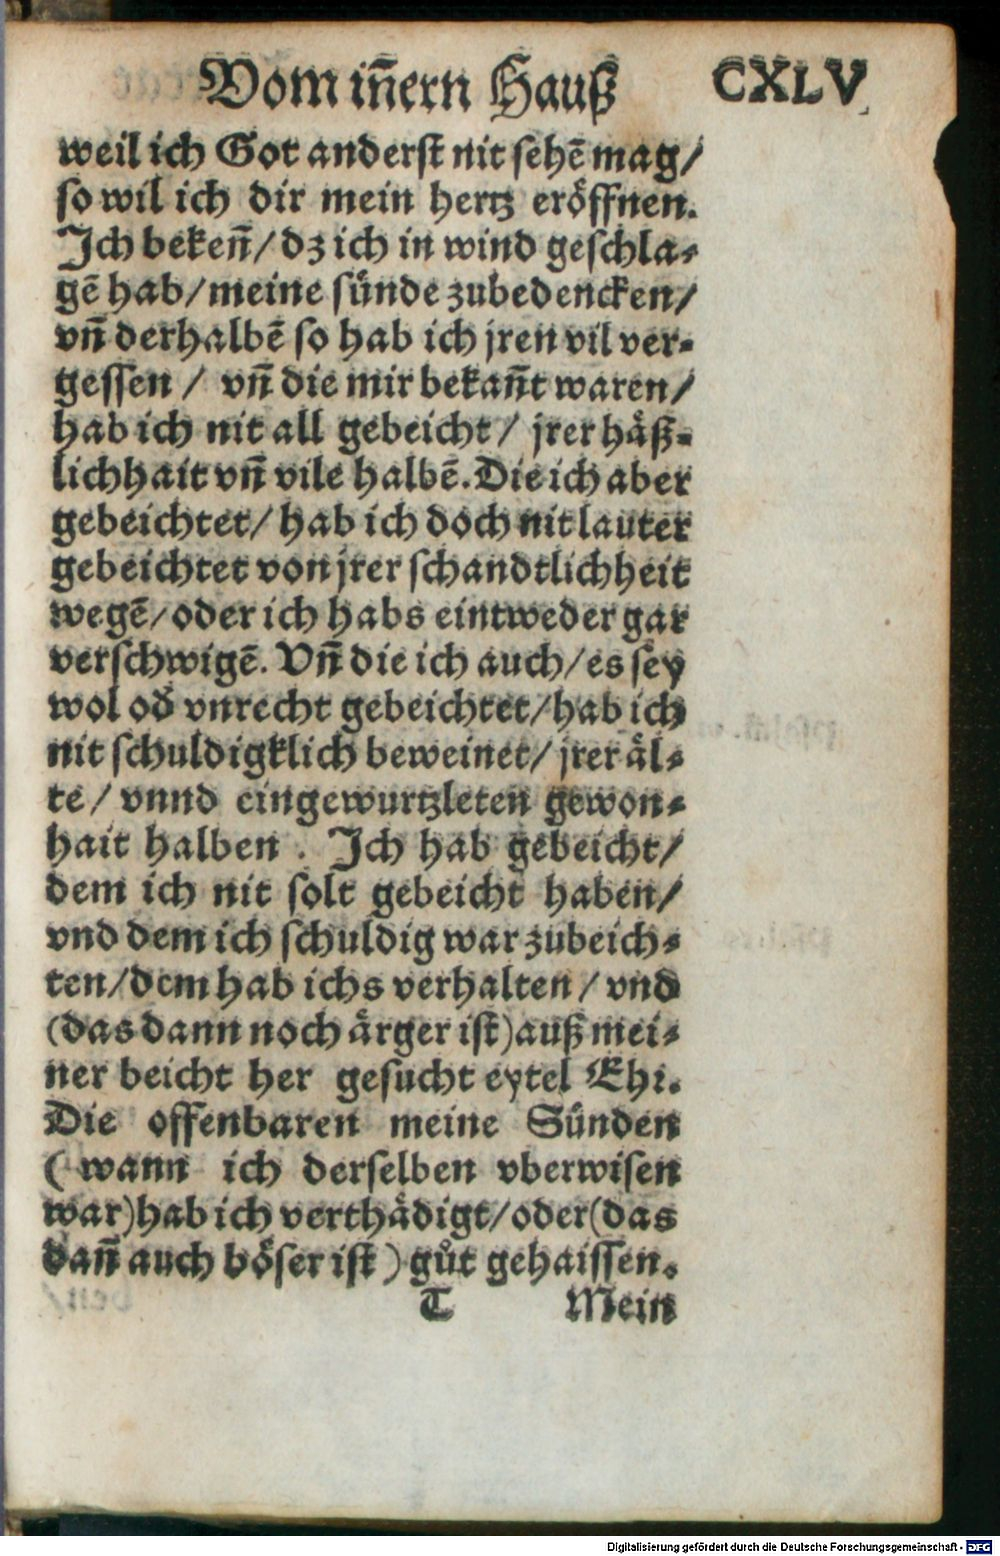 Vom iñern Hauß CXLV
weil ich Got anderst nit sehē mag/
so wil ich dir mein hertz eröffnen.
Ich bekeñ/ dz ich in wind geschla-
gē hab/ meine sünde zubedencken/
vñ derhalbē so hab ich jren vil ver-
gessen / vñ die mir bekañt waren/
hab ich nit all gebeicht/ jrer häß-
lichhait vñ vile halbē. Die ich aber
gebeichtet/ hab ich doch nit lauter
gebeichtet von jrer schandtlichheit
wegē/ oder ich habs eintweder gar
verschwigē. Vñ die ich auch/ es sey
wol od̓ vnrecht gebeichtet/ hab ich
nit schuldigklich beweinet/ jrer äl-
te/ vnnd eingewurtzleten gewon-
hait halben . Ich hab gebeicht/
dem ich nit solt gebeicht haben/
vnd dem ich schuldig war zubeich-
ten/ dem hab ichs verhalten/ vnd
(das dann noch ärger ist) auß mei-
ner beicht her gesucht eytel Ehr.
Die offenbaren meine Sünden
( wann ich derselben vberwisen
war) hab ich verthädigt/ oder (das
dañ auch böser ist ) gůt gehaissen.
T Mein
Digitalisierung gefördert durch die Deutsche Forschungsgemeinschaft - DFG